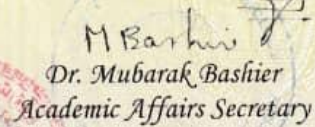 M Bashir
Dr. Mubarak Bashier
Academic Affairs Secretary